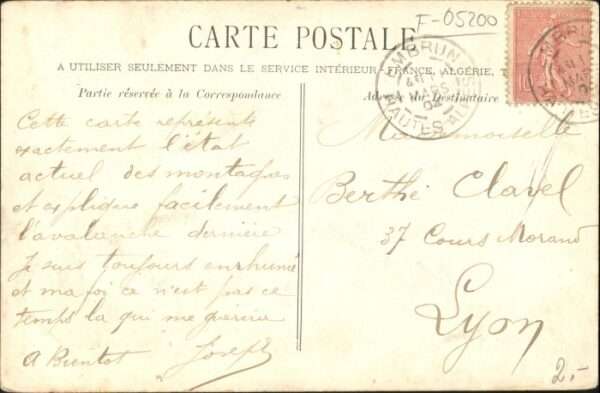 F-05200
CARTE POSTALE
A UTILISER SEULEMENT DANS LE SERVICE INTÉRIEUR, FRANCE, ALGÉRIE, T
Partie réservée à la Correspondance
Adresse du Destinataire
EMBRUN
MARS
04
HAUTES-ALPES
Cette carte représente
exactement l'état
actuel des montagnes
et explique facilement
l'avalanche dernière
Je suis toujours enrhumé
et ma foi ce n'est pas ce
temps la qui me guérira
A Bientot Joseph
Mademoiselle
Berthe Clavel
37 Cours Morand
Lyon
2.-